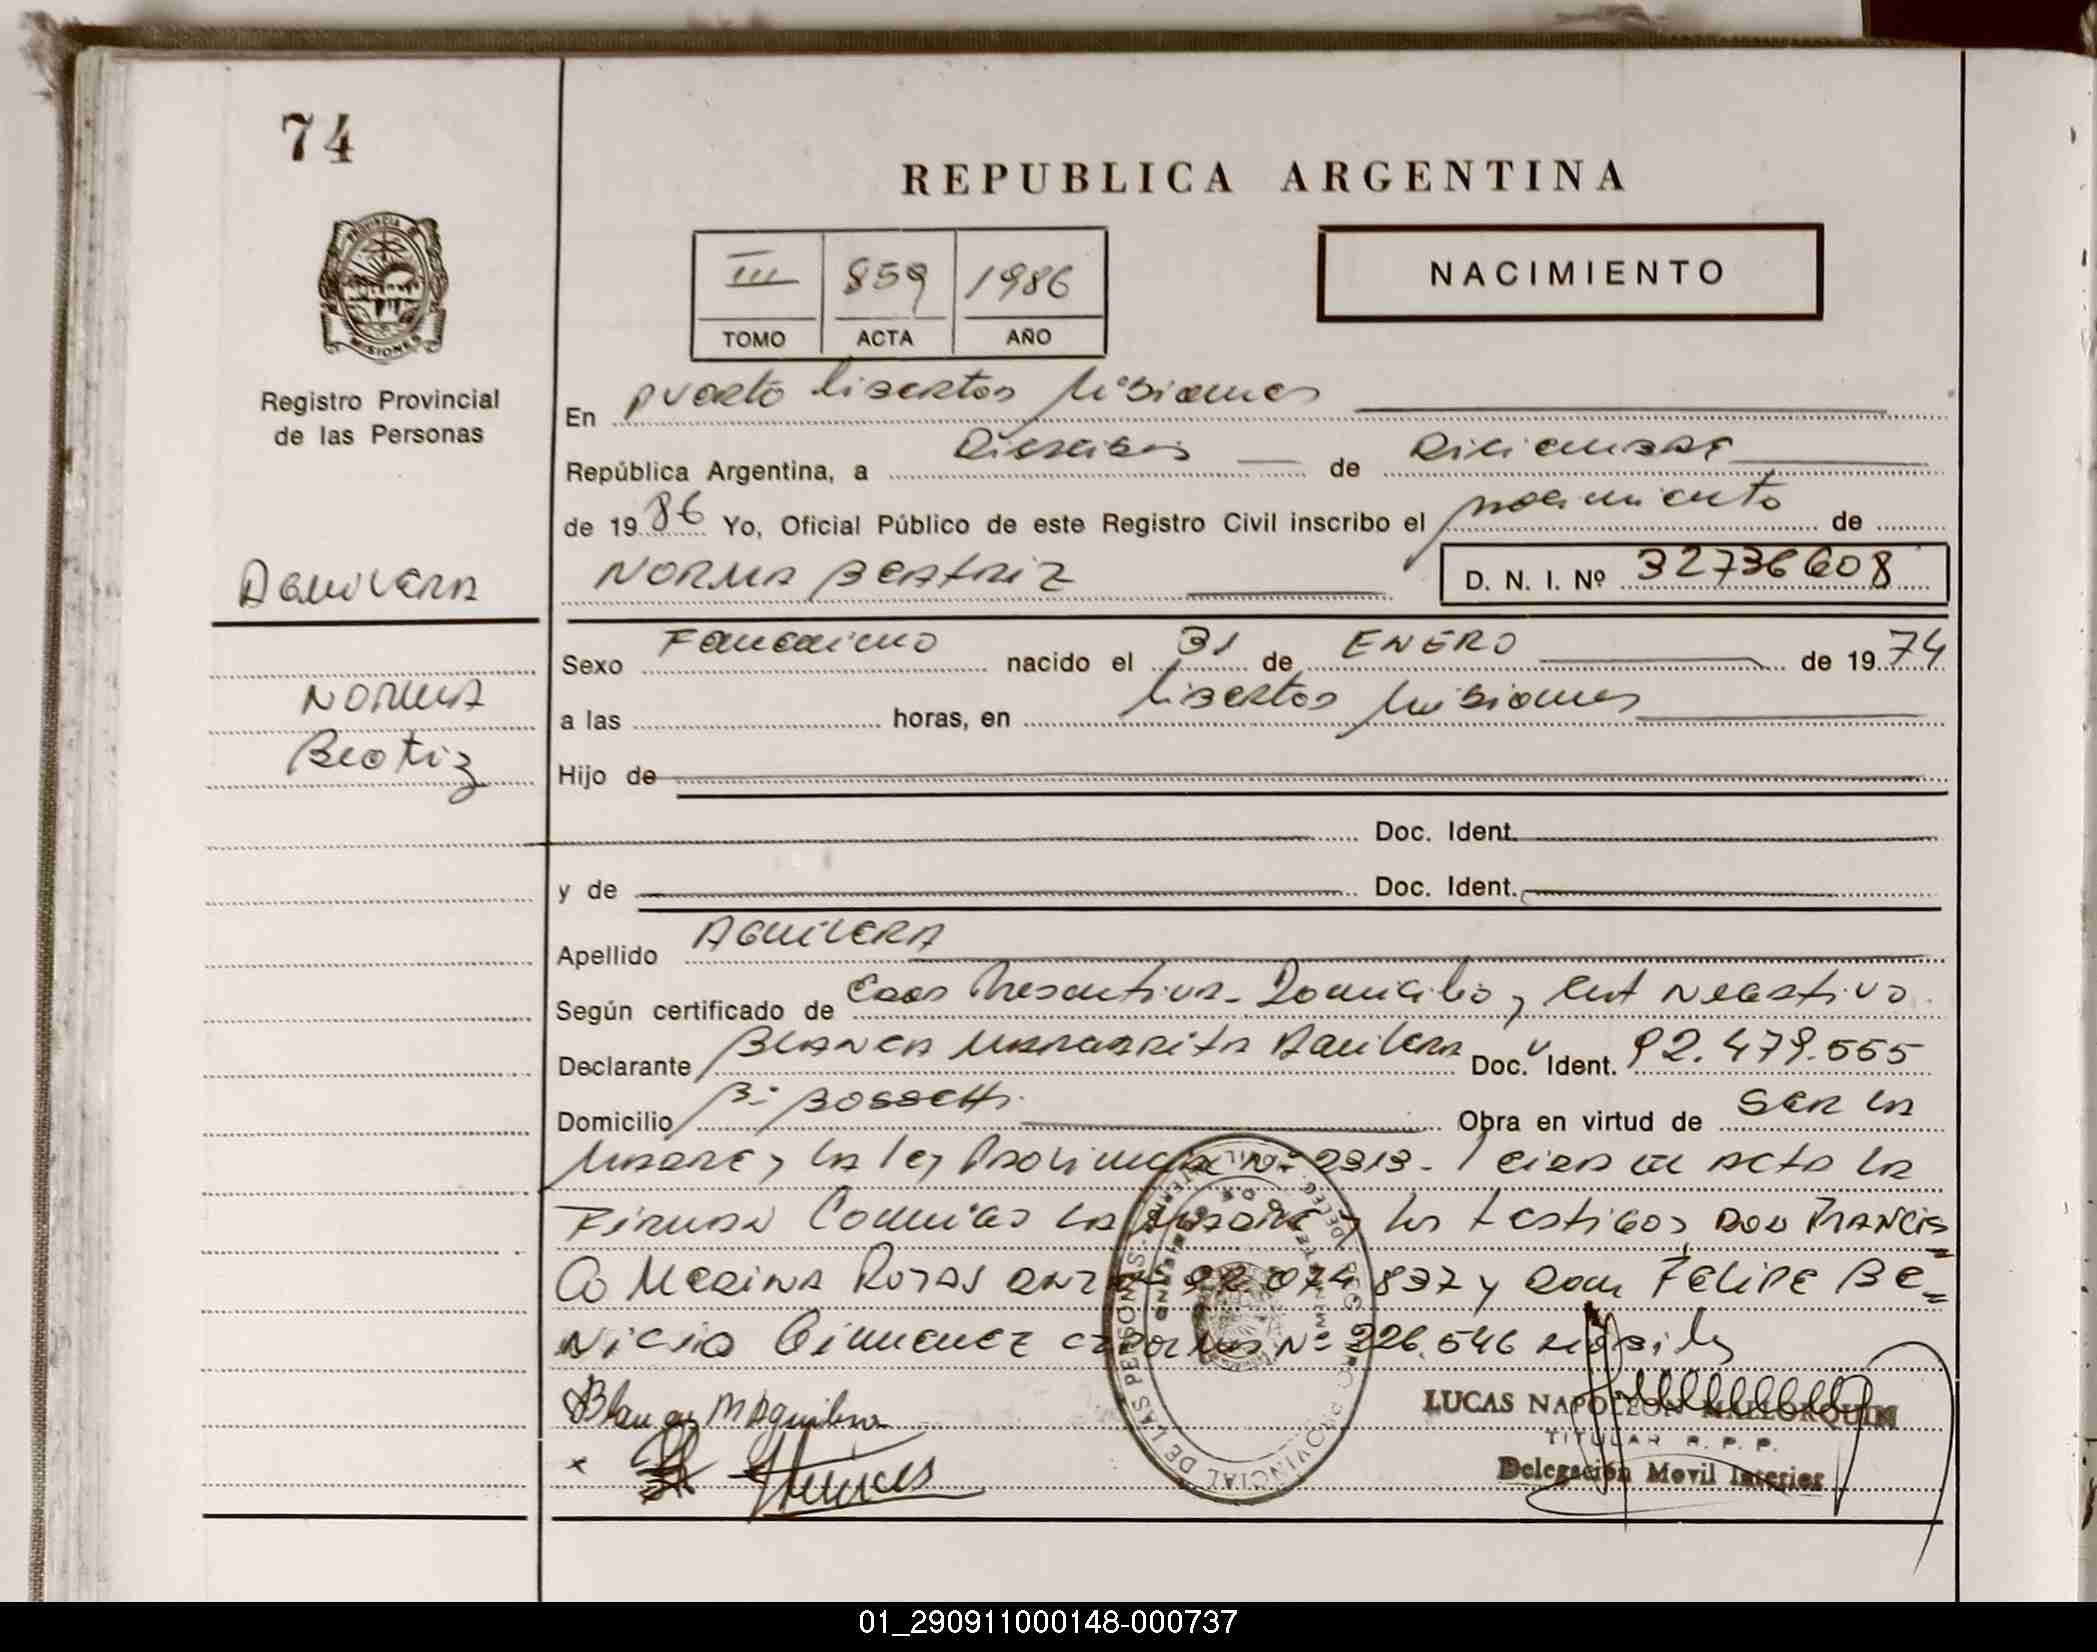 74
REPUBLICA ARGENTINA
III 859 1986
TOMO ACTA AÑO
NACIMIENTO
PROVINCIA DE
MISIONES
Registro Provincial
de las Personas
En Puerto Libertad Misiones
República Argentina, a Dieciseis de Diciembre
de 1986 Yo, Oficial Público de este Registro Civil inscribo el nacimiento de
Aguilera
Norma Beatriz D. N. I. Nº 32736608
Sexo Femenino nacido el 31 de ENERO de 1974
Norma
a las horas, en Libertad Misiones
Beatriz
Hijo de
Doc. Ident.
y de Doc. Ident.
Apellido Aguilera
Según certificado de Edad Presuntiva - Domicilio y Cert Negativo
Declarante Blanca Margarita Aguilera Doc. Ident. 92.479.555
Domicilio Bº Bossetti Obra en virtud de ser la
Madre y la ley Provincial Nº 2313 - leida el acta la
Firman Conmigo la Madre y los testigos Don Francis
co Medina Rojas 92.074.837 y Don Felipe Be=
nicio Gimenez Nº 226.546
Blanca M Aguilera
x
LUCAS NAPOLEON MALLORQUIN
TITULAR R. P. P.
Delegación Movil Interior
01_290911000148-000737